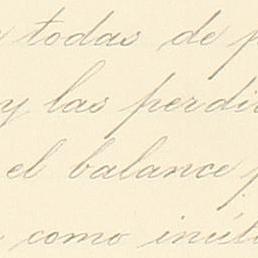 todas de
y las perdi
el balance
como inút